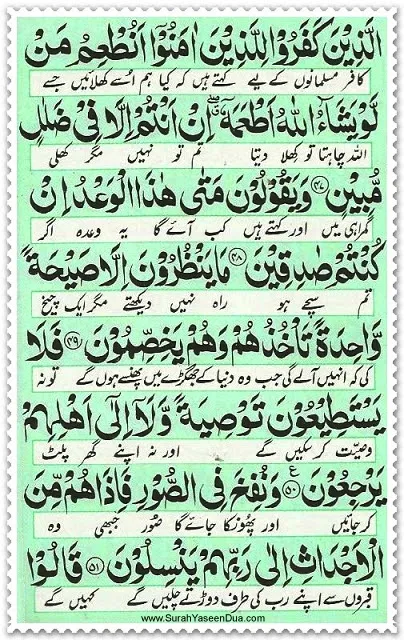 الَّذِيْنَ كَفَرُوْا لِلَّذِيْنَ اٰمَنُوْٓا اَنُطْعِمُ مَنْ
کافر مسلمانوں کے لیے کہتے ہیں کہ کیا ہم اُسے کھلائیں جسے
لَّوْ يَشَآءُ اللّٰهُ اَطْعَمَهٗٓ ۖ اِنْ اَنْتُمْ اِلَّا فِيْ ضَلٰلٍ
اللہ چاہتا تو کھلا دیتا تم تو نہیں مگر کھلی
مُّبِيْنٍ ﴿۴۷﴾ وَيَقُوْلُوْنَ مَتٰى هٰذَا الْوَعْدُ اِنْ
گمراہی میں اور کہتے ہیں کب آئے گا یہ وعدہ اگر
كُنْتُمْ صٰدِقِيْنَ ﴿۴۸﴾ مَا يَنْظُرُوْنَ اِلَّا صَيْحَةً
تم سچے ہو راہ نہیں دیکھتے مگر ایک چیخ
وَّاحِدَةً تَاْخُذُهُمْ وَهُمْ يَخِصِّمُوْنَ ﴿۴۹﴾ فَلَا
کی کہ انہیں آلے گی جب وہ دنیا کے جھگڑے میں پھنسے ہوں گے تو نہ
يَسْتَطِيْعُوْنَ تَوْصِيَةً وَّلَآ اِلٰٓى اَهْلِهِمْ
وصیّت کر سکیں گے اور نہ اپنے گھر پلٹ
يَرْجِعُوْنَ ﴿۵۰﴾ ع وَنُفِخَ فِي الصُّوْرِ فَاِذَا هُمْ مِّنَ
کر جائیں اور پھونکا جائے گا صُور جبھی وہ
الْاَجْدَاثِ اِلٰى رَبِّهِمْ يَنْسِلُوْنَ ﴿۵۱﴾ قَالُوْا
قبروں سے اپنے رب کی طرف دوڑتے چلیں گے کہیں گے
www.SurahYaseenDua.com